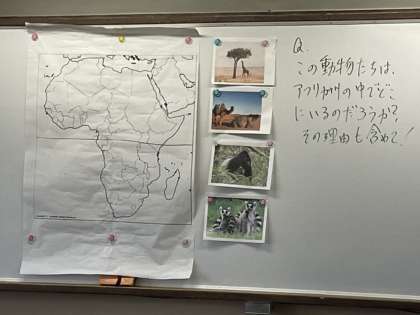 Q.
この動物たちは、
アフリカの中でどこ
にいるのだろうか?
その理由も含めて!